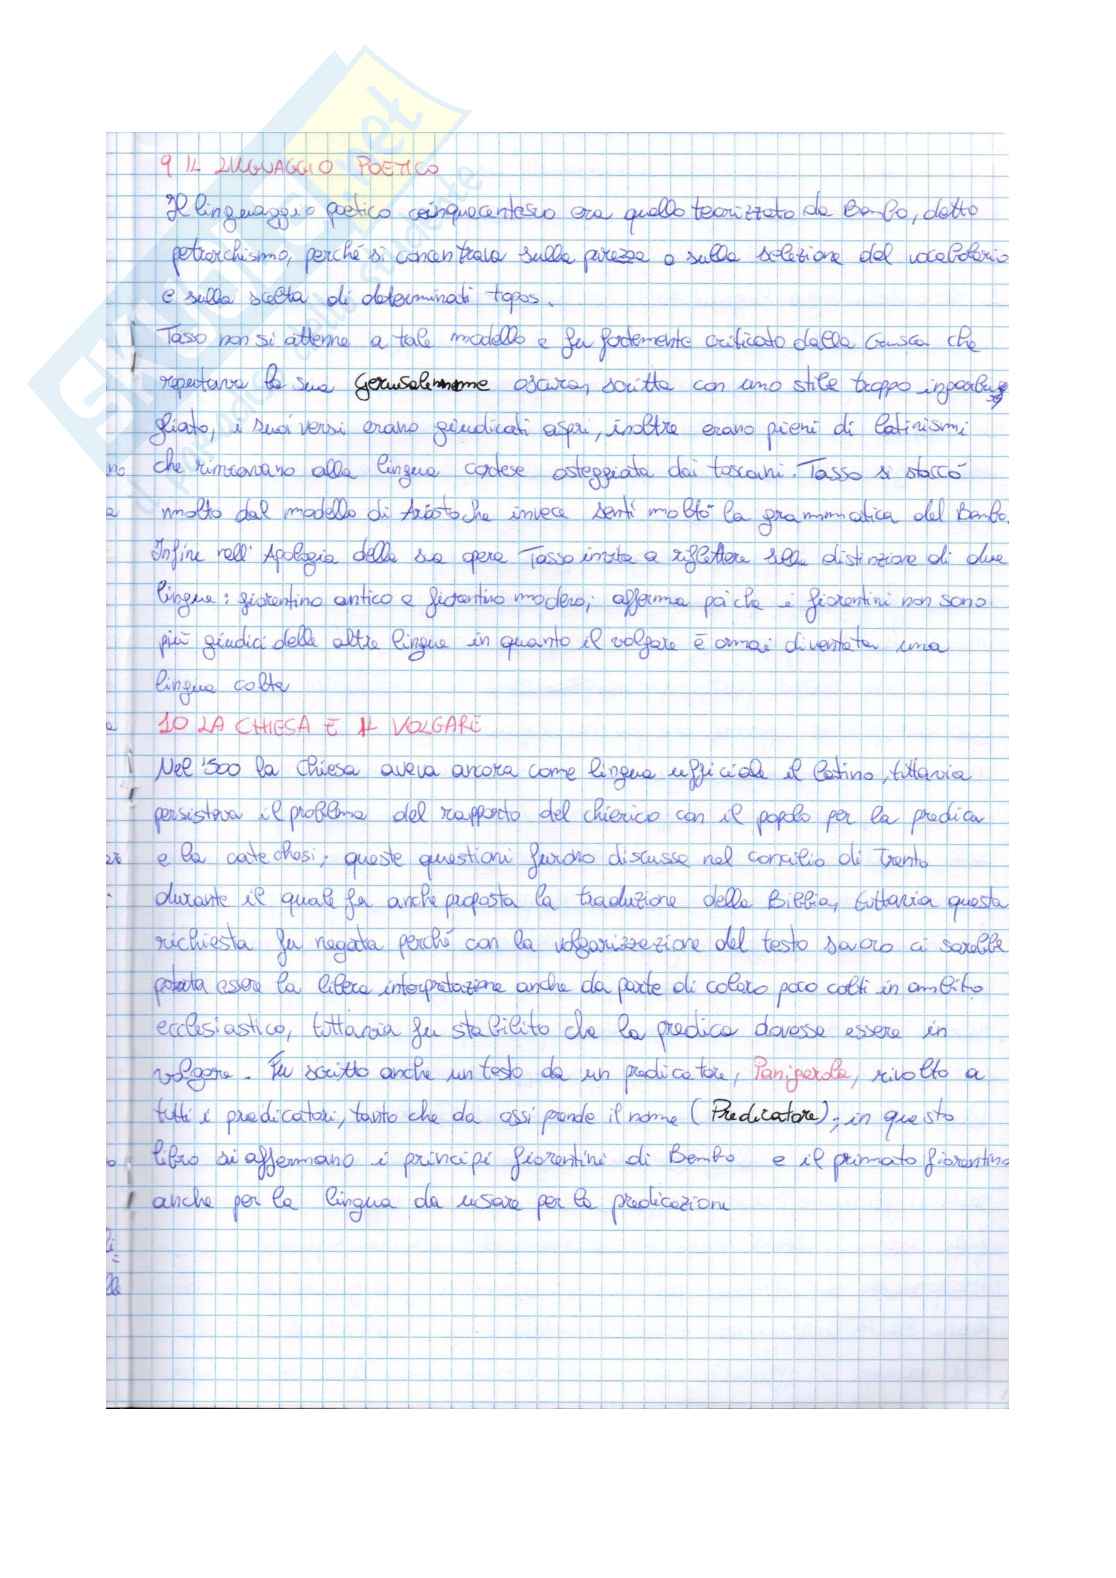 9 IL LINGUAGGIO POETICO
Il linguaggio poetico cinquecentesco era quello teorizzato da Bembo, detto
petrarchismo, perché si concentrava sulla purezza e sulla selezione del vocabolario
e sulla scelta di determinati topos.
Tasso non si attenne a tale modello e fu fortemente criticato dalla Crusca che
reputava la sua Gerusalemme oscura, scritta con uno stile troppo ingarbu
gliato, i suoi versi erano giudicati aspri, inoltre erano pieni di latinismi
che rinviavano alla lingua cortese osteggiata dai toscani. Tasso si staccò
molto dal modello di Ariosto che invece sentì molto la grammatica del Bembo.
Infine nell' Apologia della sua opera Tasso invita a riflettere sulla distinzione di due
lingue: fiorentino antico e fiorentino moderno; afferma poi che i fiorentini non sono
più giudici delle altre lingue in quanto il volgare è ormai diventata una
lingua colta
10 LA CHIESA E IL VOLGARE
Nel '500 la Chiesa aveva ancora come lingua ufficiale il latino, tuttavia
persisteva il problema del rapporto del chierico con il popolo per la predica
e la catechesi; queste questioni furono discusse nel concilio di Trento
durante il quale fu anche proposta la traduzione della Bibbia, tuttavia questa
richiesta fu negata perché con la volgarizzazione del testo sacro ci sarebbe
potuta essere la libera interpretazione anche da parte di coloro poco colti in ambito
ecclesiastico, tuttavia fu stabilito che la predica dovesse essere in
volgare. Fu scritto anche un testo da un predicatore, Panigarola, rivolto a
tutti i predicatori, tanto che da essi prende il nome (Predicatore); in questo
libro si affermano i principi fiorentini di Bembo e il primato fiorentino
anche per la lingua da usare per la predicazione